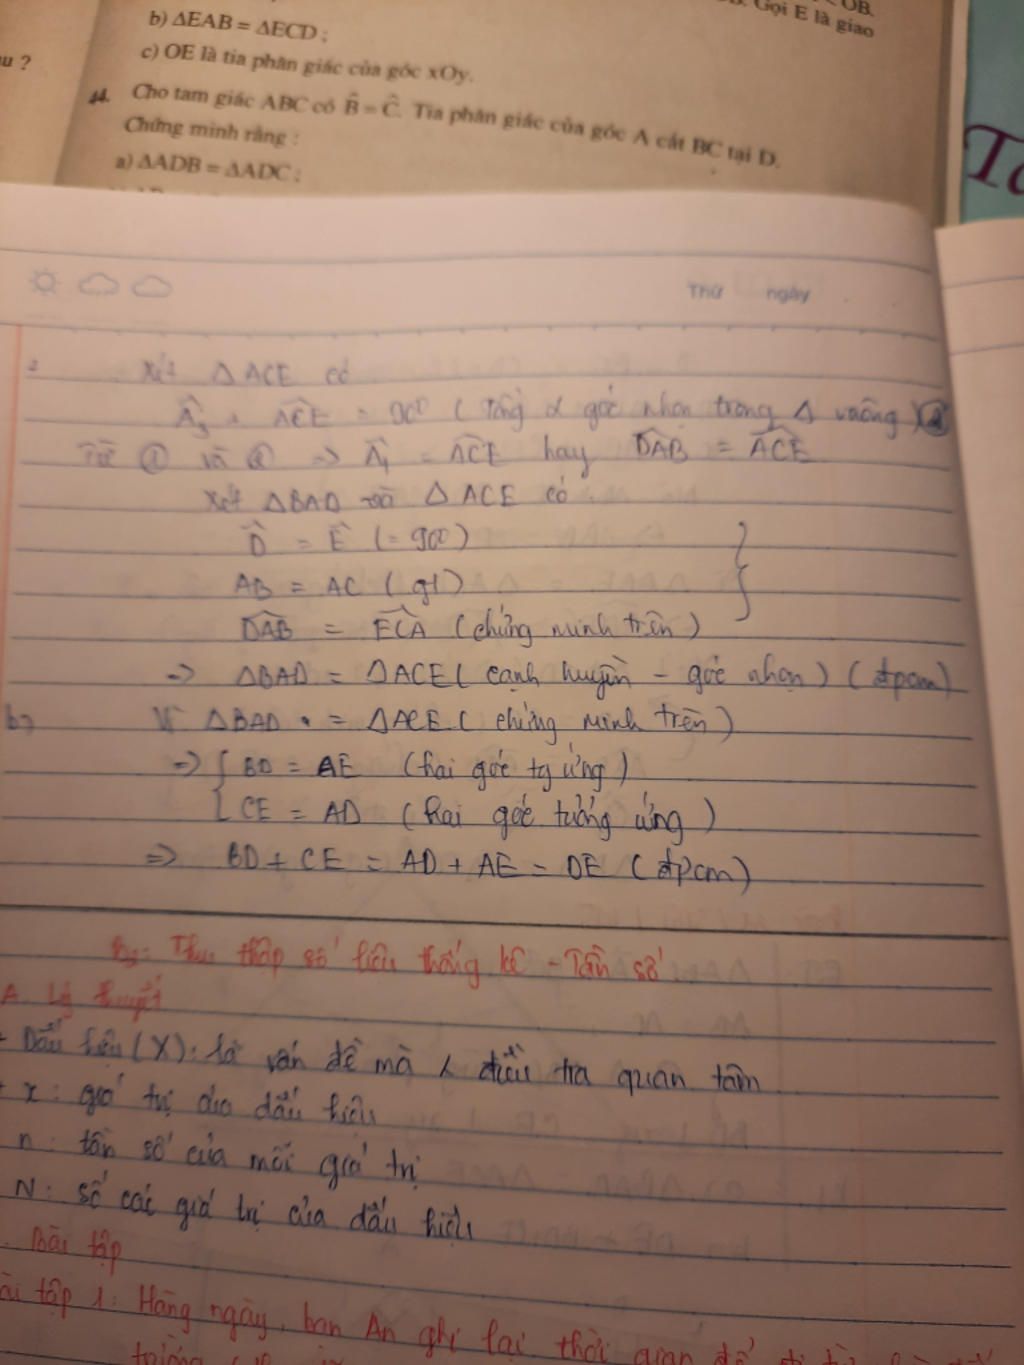 OB.
Gọi E là giao
b) ΔEAB = ΔECD ;
u ?
c) OE là tia phân giác của góc xOy.
44. Cho tam giác ABC có B̂ = Ĉ. Tia phân giác của góc A cắt BC tại D.
Chứng minh rằng :
a) ΔADB = ΔADC ;
Thứ ngày
Xét Δ ACE có
(Tổng 2 góc nhọn trong Δ vuông)
Từ ① và ② => Â₁ = ACE hay DAB = ACE
Xét ΔBAD và Δ ACE có
D̂ = Ê (= 90⁰)
AB = AC (gt)
DAB = ECA (chứng minh trên)
=> ΔBAD = ΔACE ( cạnh huyền - góc nhọn ) ( đpcm)
b, Vì ΔBAD = ΔACE ( chứng minh trên )
=> { BD = AE (hai góc tg ứng )
CE = AD (hai góc tương ứng )
=> BD + CE = AD + AE = DE ( đpcm)
Thu thập số liệu thống kê - Tần số
A. Lý thuyết
- Dấu hiệu (X): là vấn đề mà điều tra quan tâm
+ x : giá trị của dấu hiệu
n : tần số của mỗi giá trị
N : số các giá trị của dấu hiệu
Bài tập
ài tập 1: Hàng ngày, bạn An ghi lại thời gian để đi từ
trường